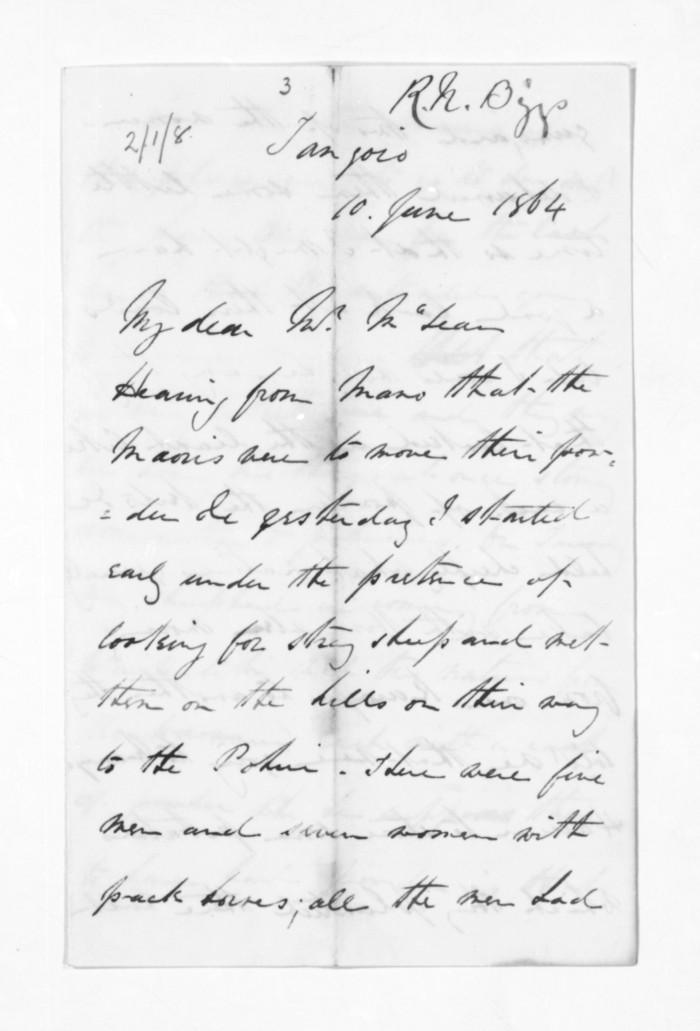 3
R. N. Biggs
2/1/8
Tangoio
10. June 1864
My dear Mr. McLean
Hearing from Mano that the
Maoris were to move their pow=
=der &c yesterday I started
early under the pretence of
looking for stray sheep and met
them on the hills on their way
to the Pohui. There were five
men and seven women with
pack horses; all the men had